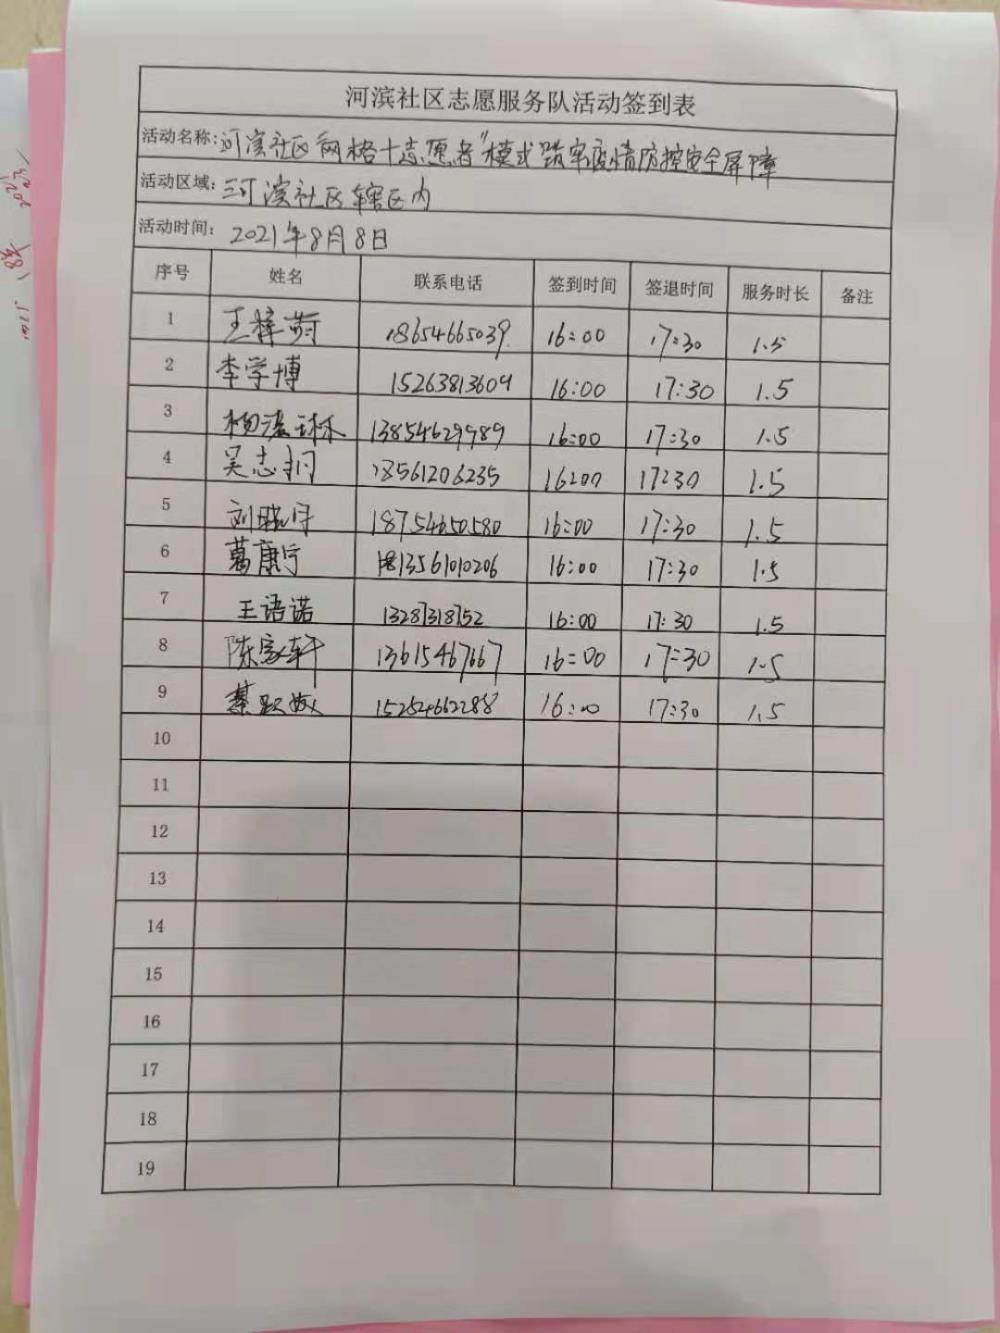 河滨社区志愿服务队活动签到表
活动名称:河滨社区"网格十志愿者"模式 筑牢疫情防控安全屏障
活动区域: 河滨社区辖区内
活动时间: 2021年8月8日
序号 姓名 联系电话 签到时间 签退时间 服务时长 备注
1 王梓 18654665039 16:00 17:30 1.5
2 李学博 15263813609 16:00 17:30 1.5
3 杨 琳 13854629989 16:00 17:30 1.5
4 吴志 18561206235 16:00 17:30 1.5
5 刘晓 18754650580 16:00 17:30 1.5
6 葛康宁 13561010206 16:00 17:30 1.5
7 王语诺 13287318752 16:00 17:30 1.5
8 陈家轩 13615467667 16:00 17:30 1.5
9 15254662288 16:00 17:30 1.5
10
11
12
13
14
15
16
17
18
19